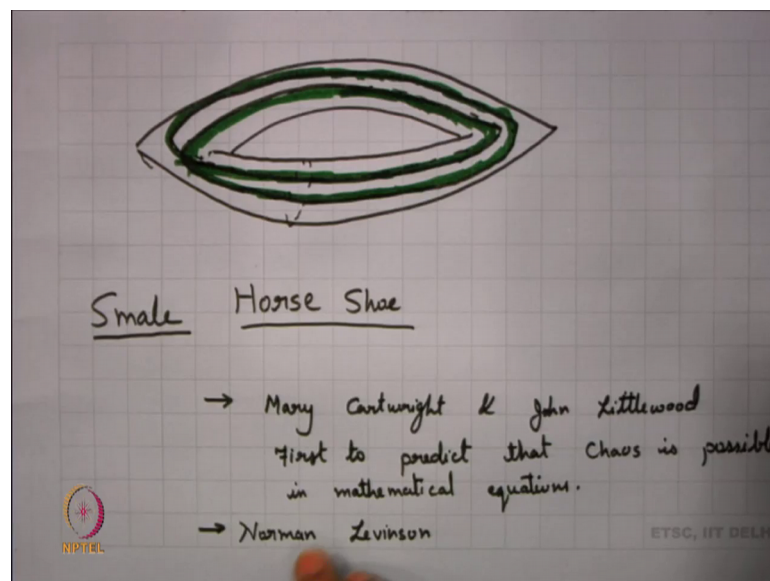 Smale Horse Shoe
→ Mary Cartwright & John Littlewood
First to predict that Chaos is possibl
in mathematical equations.
→ Norman Levinson
ETSC, IIT DELH
NPTEL